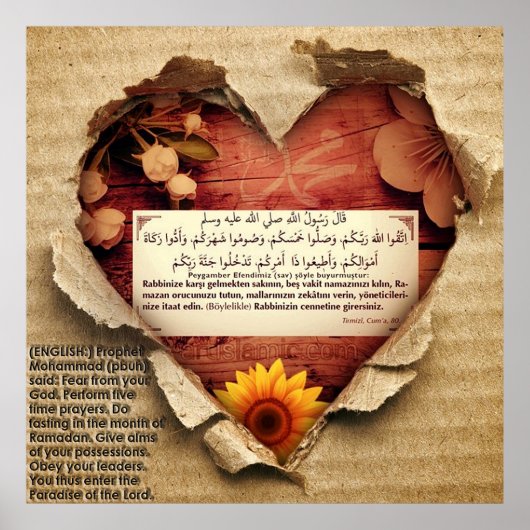 محمد
قَالَ رَسُولُ اللَّهِ صلي الله عليه وسلم
اِتَّقُوا اللهَ رَبَّكُمْ، وَصَلُّوا خَمْسَكُمْ، وَصُومُوا شَهْرَكُمْ، وَأَدُّوا زَكَاةَ
أَمْوَالِكُمْ، وَأَطِيعُوا ذَا أَمْرِكُمْ، تَدْخُلُوا جَنَّةَ رَبِّكُمْ
Peygamber Efendimiz (sav) şöyle buyurmuştur:
Rabbinize karşı gelmekten sakının, beş vakit namazınızı kılın, Ra-
mazan orucunuzu tutun, mallarınızın zekâtını verin, yöneticileri-
nize itaat edin. (Böylelikle) Rabbinizin cennetine girersiniz.
Tirmizî, Cum'a, 80.
artislamic.com
(ENGLISH:) Prophet
Mohammad (pbuh)
said: Fear from your
God. Perform five
time prayers. Do
fasting in the month of
Ramadan. Give alms
of your possessions.
Obey your leaders.
You thus enter the
Paradise of the Lord.